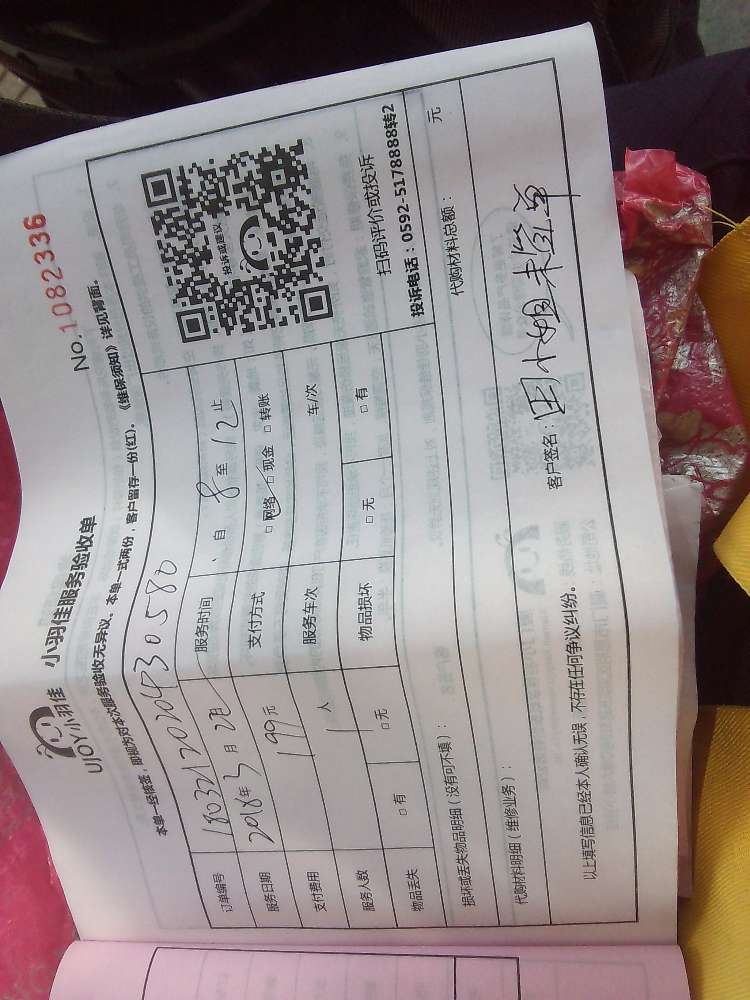 UJOY小羽佳 小羽佳服务验收单
No.1082336
本单一经被签，即视为对本次服务验收无异议、本单一式两份，客户留存一份(红)。《维保须知》详见背面。
订单编号 180321202043058
服务日期 2018年3月 日 服务时间 自 8 至 12 止
支付费用 199元 支付方式 □网络 □现金 □转账
服务人数 1 人 服务车次 车/次
物品丢失 □有 □无 物品损坏 □无 □有
投诉或建议
扫码评价或投诉
投诉电话：0592-5178888转2
损坏或丢失物品明细（没有可不填）：
代购材料明细（维修业务）： 代购材料总额： 元
以上填写信息已经本人确认无误，不存在任何争议纠纷。
客户签名：田小姐未签单